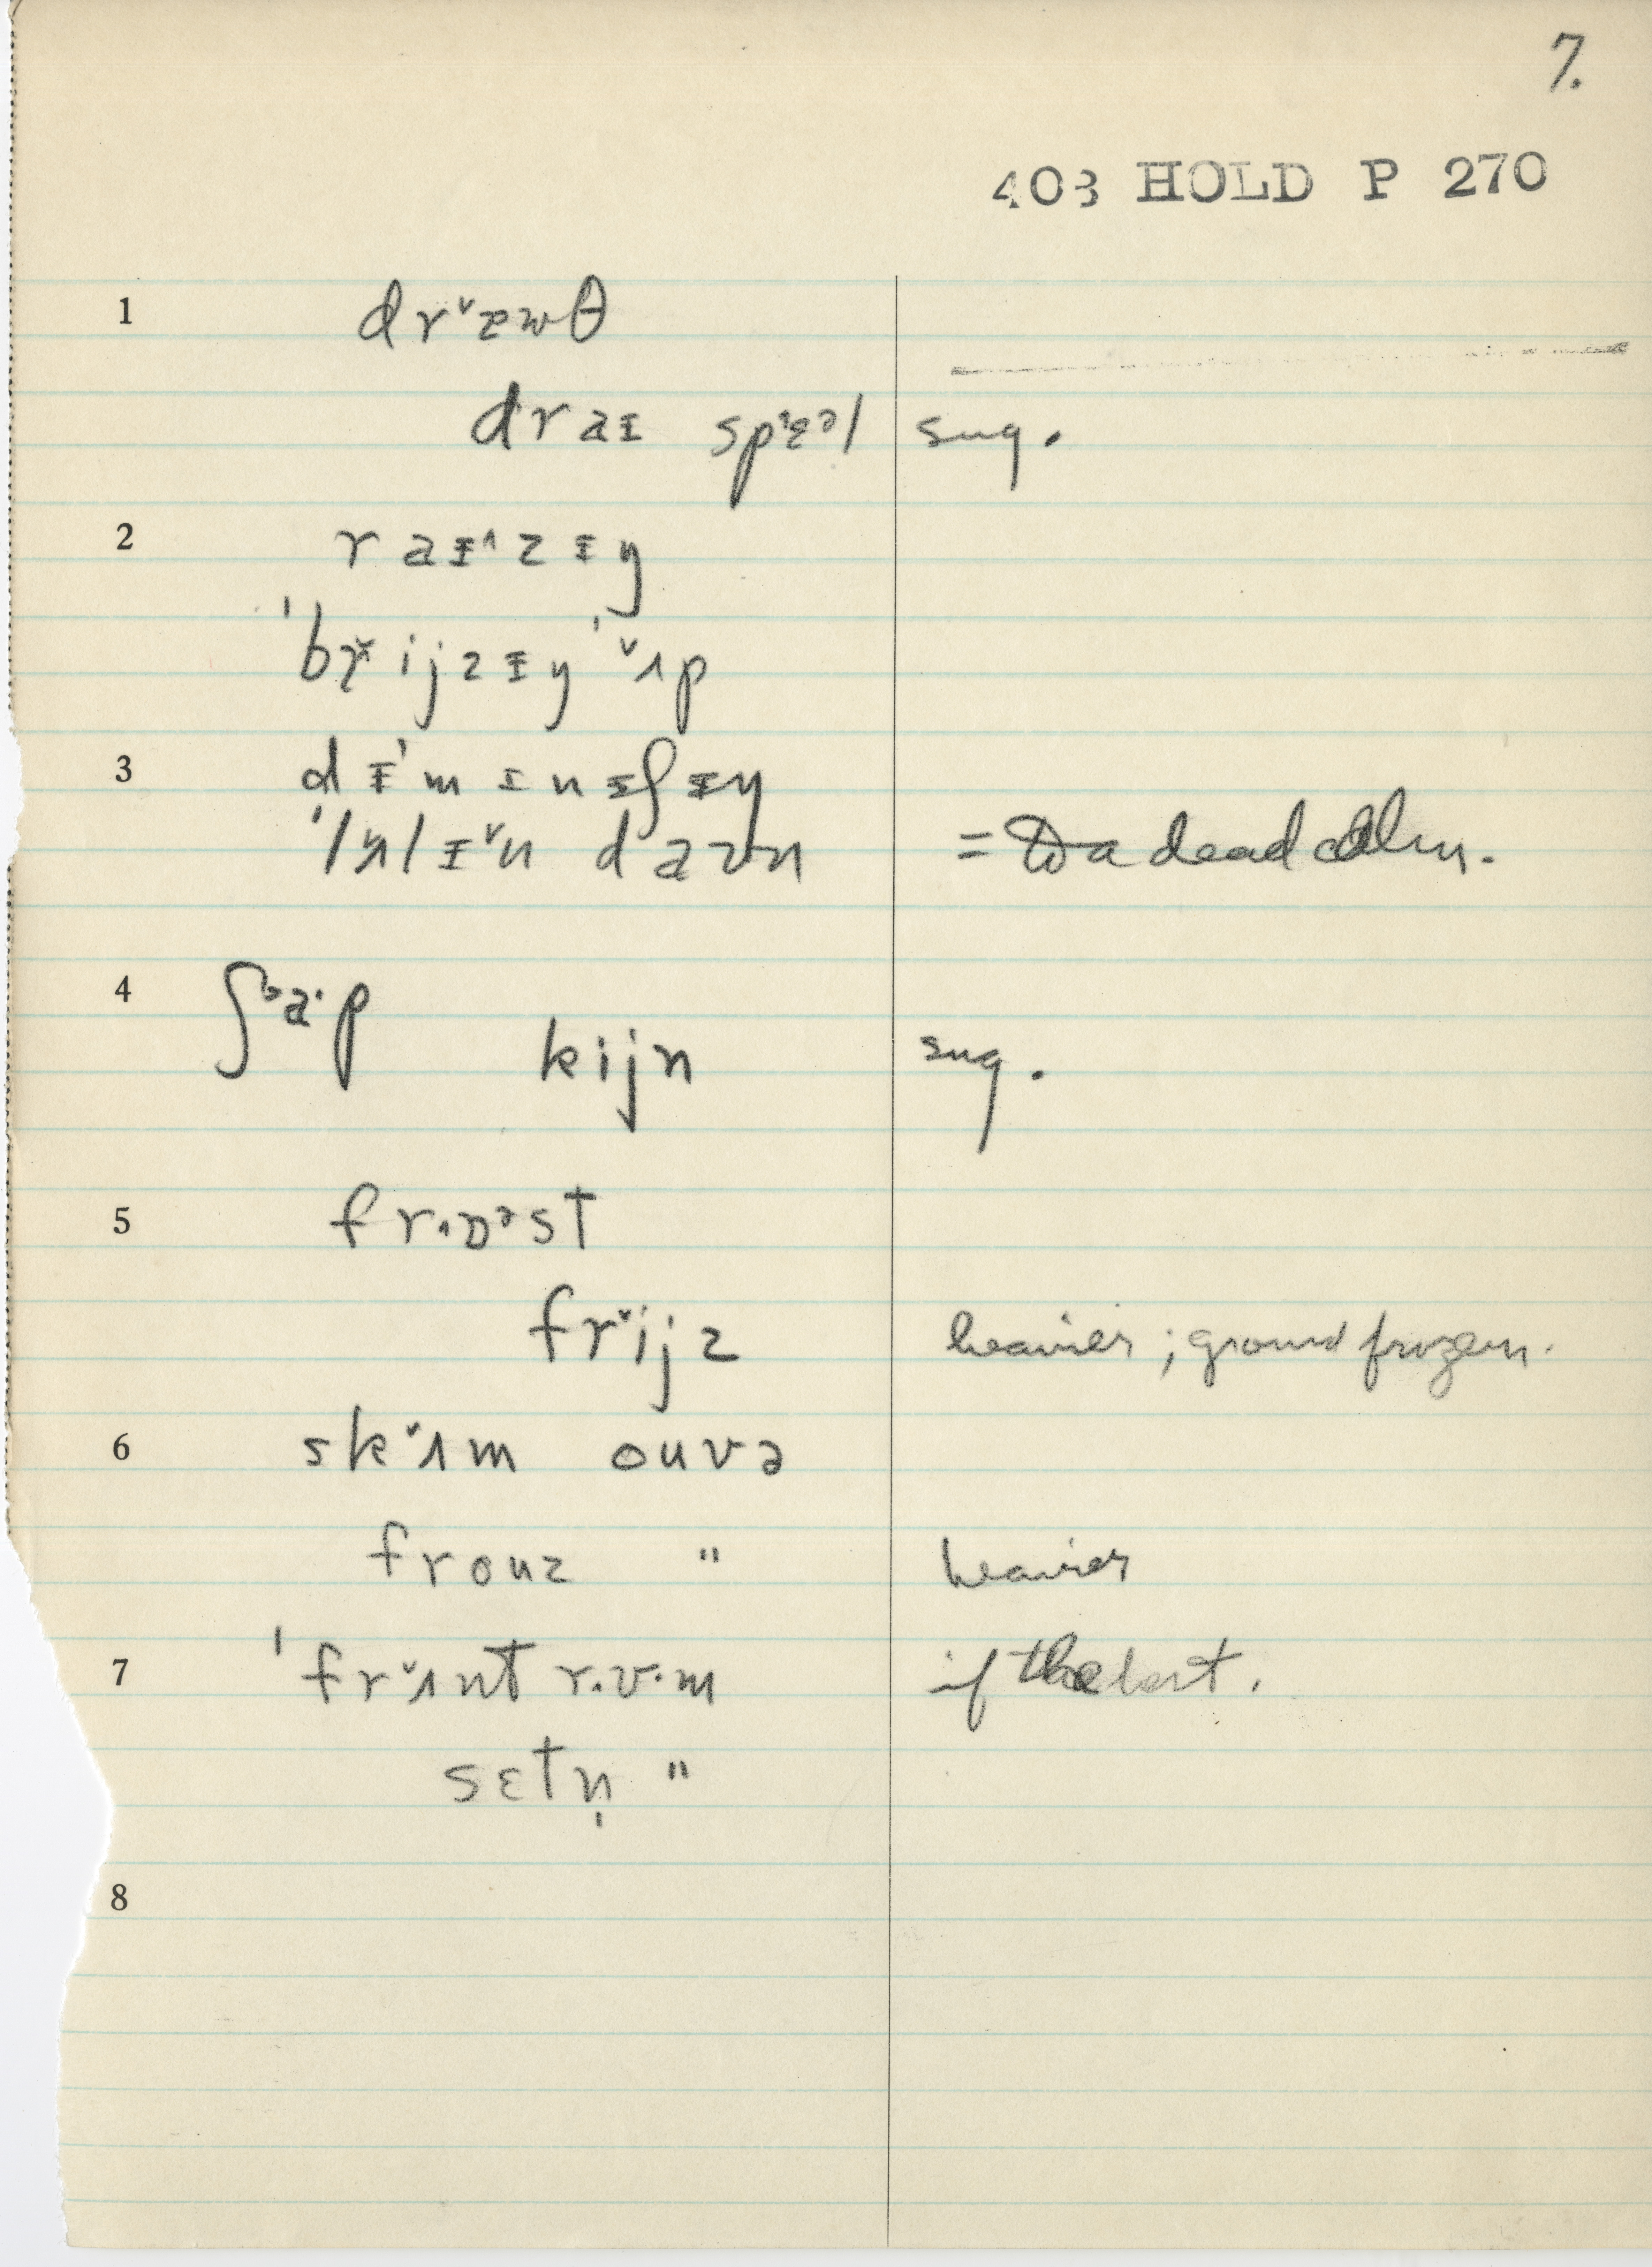 7.
403 HOLD P 270
1 drˇæwθ
draɪ spᵋɛᵊl sug.
2 raᵻ^zᵻŋ
ˈbrˇijzᵻŋ ˈˇʌp
3 dᵻˈmɪnɪʃᵻŋ
ˈlʌlɪˇn daʊn = To a dead calm.
4 ʃˇa·p
kijn sug.
5 fr·ɒᵊst
frˇijz heavier; ground frozen.
6 skˇɪm ouvə
frouz " heavier
7 ˈfrˇʌnt r·ʊ·m if the best.
sɛtn̩ "
8